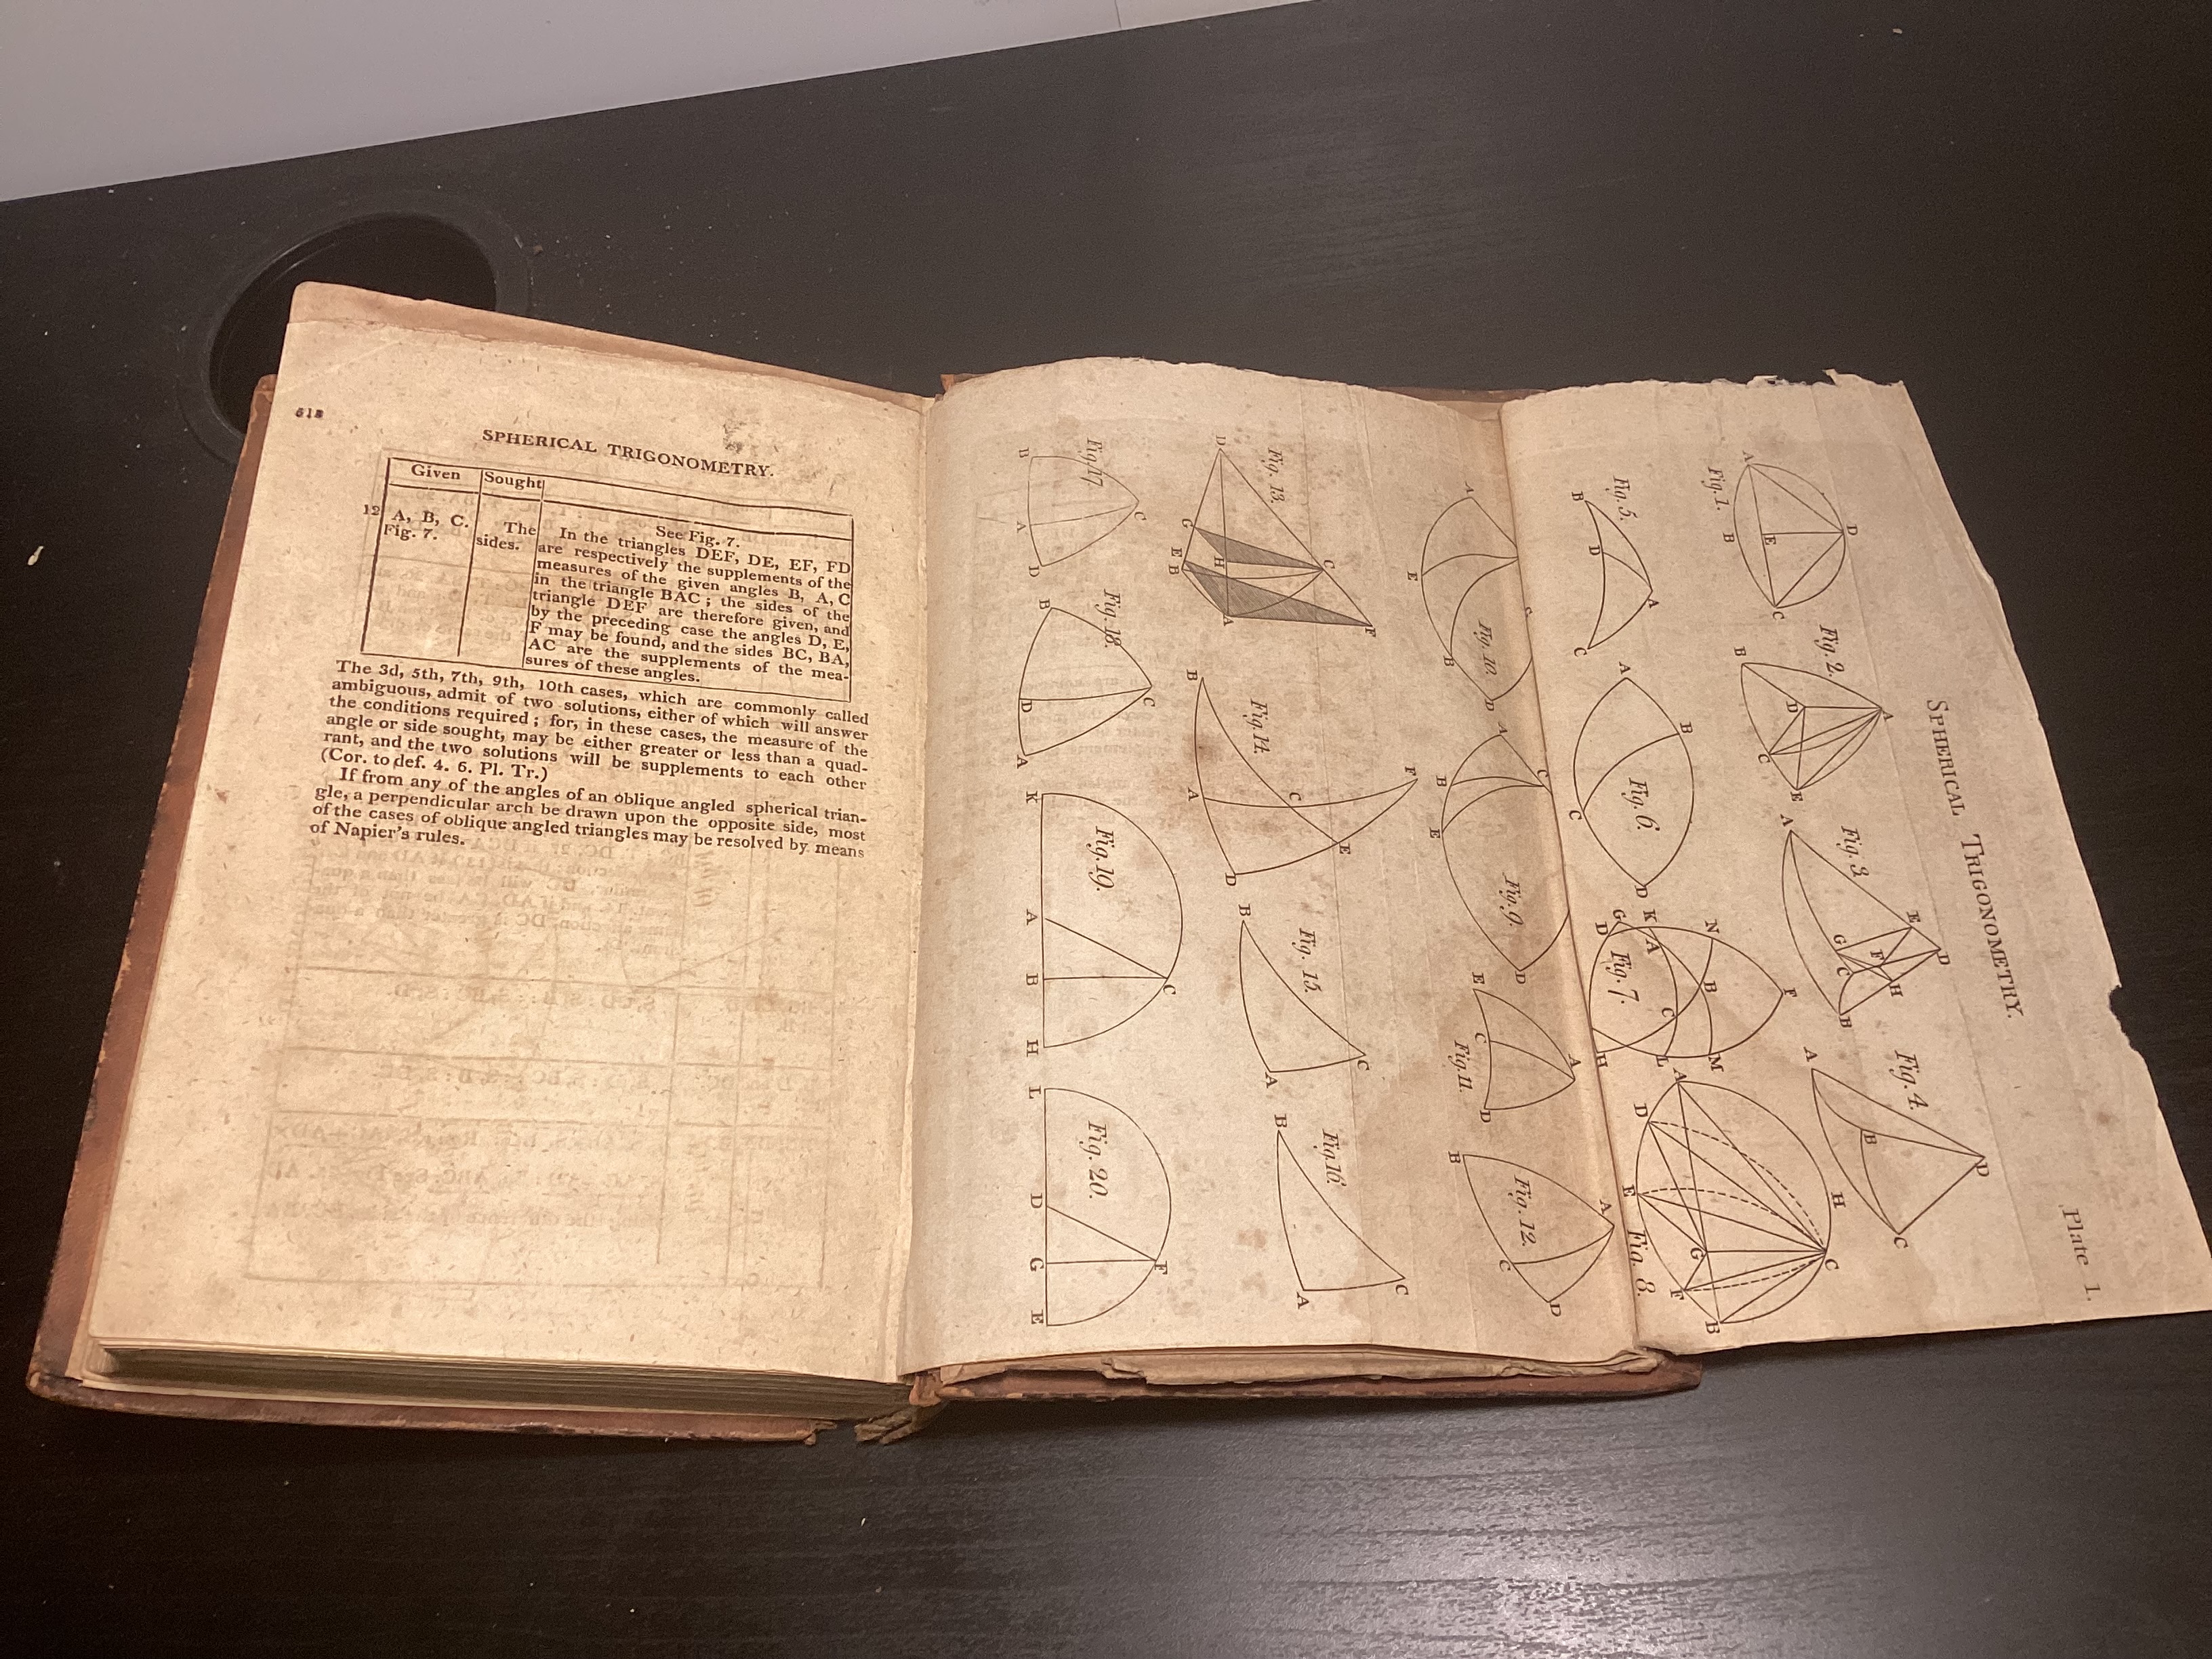 518
SPHERICAL TRIGONOMETRY.
Given
Sought
12
A, B, C.
Fig. 7.
The
sides.
See Fig. 7.
In the triangles DEF, DE, EF, FD
are respectively the supplements of the
measures of the given angles B, A, C
in the triangle BAC; the sides of the
triangle DEF are therefore given, and
by the preceding case the angles D, E,
F may be found, and the sides BC, BA,
AC are the supplements of the mea-
sures of these angles.
The 3d, 5th, 7th, 9th, 10th cases, which are commonly called
ambiguous, admit of two solutions, either of which will answer
the conditions required; for, in these cases, the measure of the
angle or side sought, may be either greater or less than a quad-
rant, and the two solutions will be supplements to each other
(Cor. to def. 4. 6. Pl. Tr.)
If from any of the angles of an oblique angled spherical trian-
gle, a perpendicular arch be drawn upon the opposite side, most
of the cases of oblique angled triangles may be resolved by means
of Napier's rules.
Plate 1.
SPHERICAL TRIGONOMETRY.
Fig. 1.
A
D
E
B
C
Fig. 2.
B
A
D
C
E
Fig. 3
A
E
D
G
F
C
H
B
Fig. 4.
A
B
D
C
Fig. 5.
B
D
A
C
Fig. 6.
A
B
C
D
Fig. 7.
G
K
D
A
N
B
F
C
H
L
M
Fig. 8.
A
D
H
E
G
C
F
B
Fig. 9.
A
B
C
E
D
Fig. 10.
A
E
B
D
Fig. 11.
E
C
A
D
Fig. 12.
B
A
C
D
Fig. 13.
D
G
E
H
B
C
A
F
Fig. 14.
B
A
C
F
E
D
Fig. 15.
B
C
A
Fig. 16.
B
C
A
Fig. 17
B
C
A
D
Fig. 18.
B
C
D
A
Fig. 19.
K
A
B
C
H
Fig. 20.
L
D
G
F
E